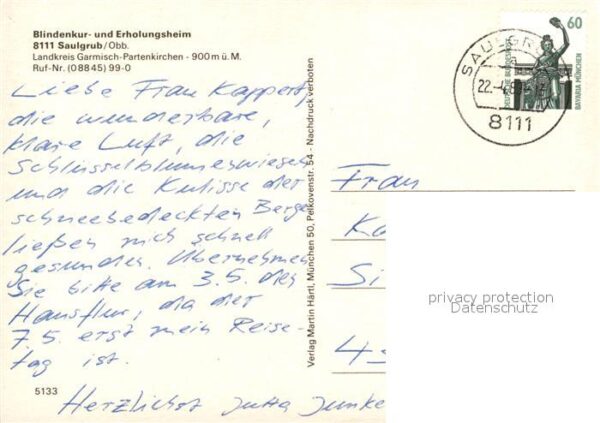 Blindenkur- und Erholungsheim
8111 Saulgrub/Obb.
Landkreis Garmisch-Partenkirchen - 900 m ü. M.
Ruf-Nr. (0 88 45) 99-0
Liebe Frau
die wunderbare,
klare Luft, die
Schlüsselblumenwiesen
und die Kulisse der
schneebedeckten Berge
ließen mich schnell
gesunden. Übernehmen
Sie bitte am 3.5. den
Hausflur, da der
7.5. erst mein Reise-
tag ist.
Herzlichst Jutta Junke
5133
Verlag Martin Härtl, München 50, Pelkovenstr. 54 - Nachdruck verboten
SAULGR
22.-4.8
8111
60
DEUTSCHE BUNDESPOST
BAVARIA MÜNCHEN
Frau
Ka
Si
privacy protection
Datenschutz